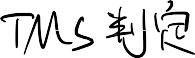 TMS 判定